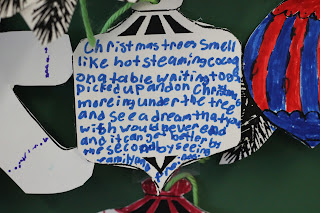 Christmas trees Smell
like hot steaming cocoa
on a table waiting to be
picked up and on Christmas
moreing under the trees
and see a dream that you
wish would never end
and it can get better by
the second by seeing
family and friends